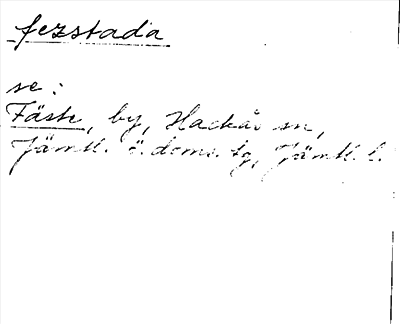 fezstada
se:
Fäste, by, Hackås sn,
Jämtl. ö. doms. tg, Jämtl. l.